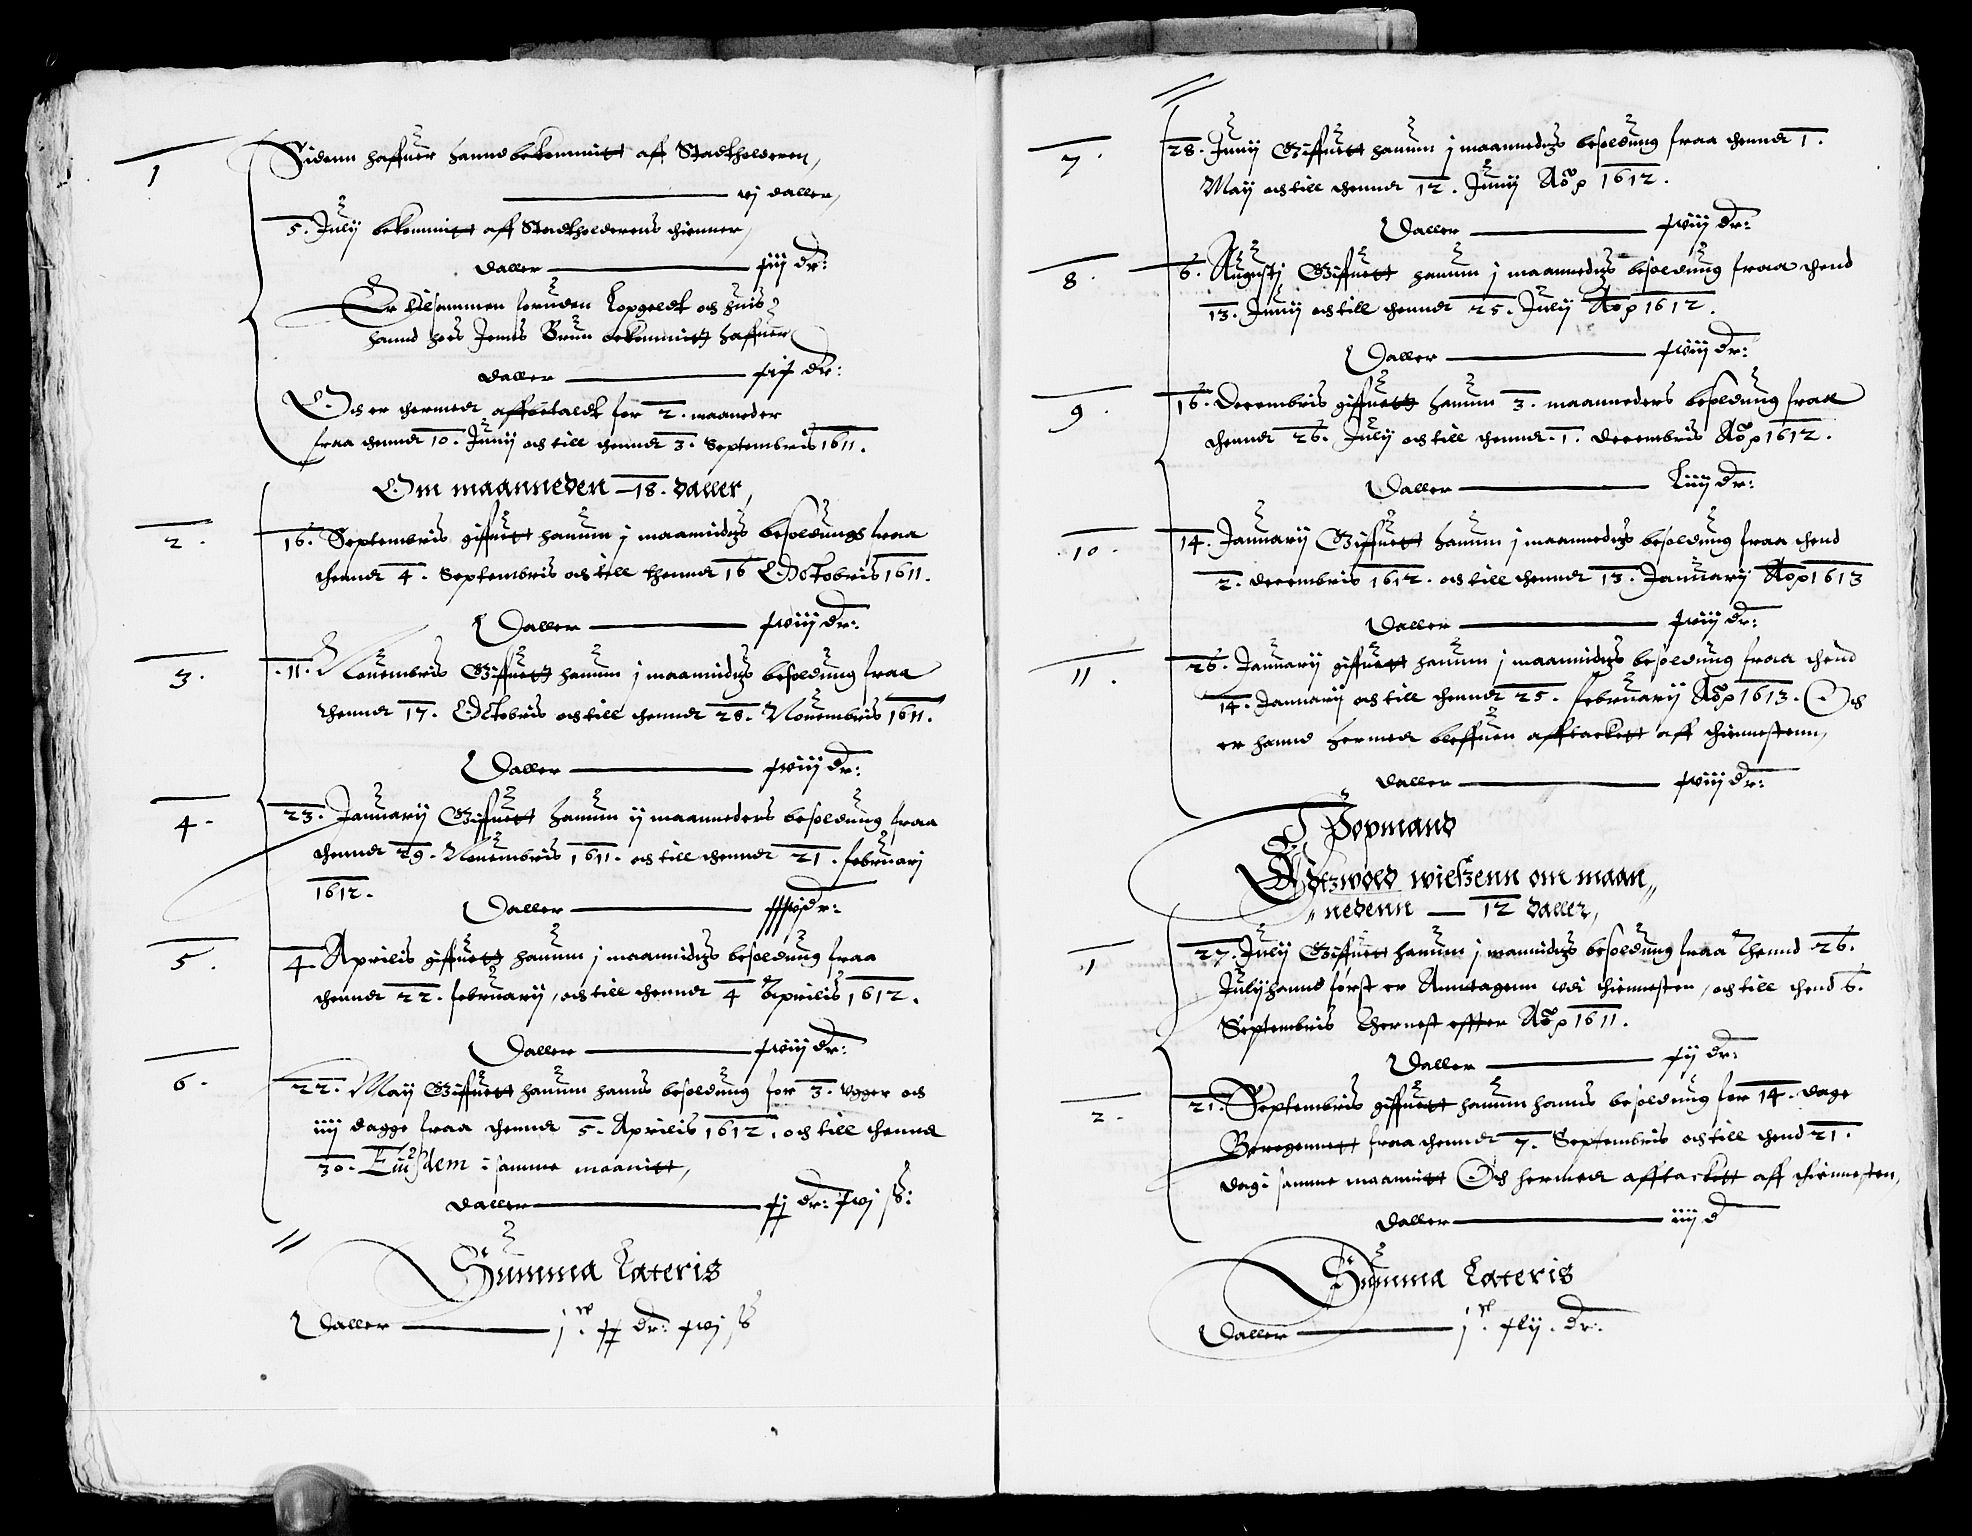 1 Sidenn haffuer hannd bekommitt aff Stadtholderen,
vj daller,
5. Julij bekommitt aff Stadtholderens thienner,
daller xiij dr:
Er tilsammen foruden Lopgeldt och huis
hannd hos Jenns Bruun bekommitt haffuer
daller xix dr:
Och er thermedt affbetaldt for 2. maaneder
fraa thenndt 10. Junij och till thenndt 3. Septembris 1611.
Om maanneden 18. daller,
2. 16. Septembris giffuett hanum j maannidtz besoldungs fraa
thenndt 4. Septembris och till thenndt 16 Octobris 1611.
Daller xviij dr:
3. 11. Nouembris Giffuett hanum j maannidtz besoldung fraa
thenndt 17. Octobris och till thenndt 28. Nouembris 1611.
Daller xviij dr:
4. 23. Januarij Giffuett hanum ij maanneders besoldung fraa
thenndt 29. Nouembris 1611. och till thenndt 21. februarj
1612.
Daller xxxvj dr:
5. 4. Aprilis giffuett hanum j maannidtz besoldung fraa
thenndt 22. februarij, och till thenndt 4 Aprilis 1612.
Daller xviij dr:
6. 22. Maij Giffuett hanum hanns besoldung for 3. vgger och
iiij dagge fraa thenndt 5. Aprilis 1612. och till thenndt
30. Eiusdem i samme maanitt,
daller xj dr: xvj ß:
Summa Lateris
Daller j c. xx dr: xvj ß
7. 28. Junij Giffuett hanum j maannedtz besoldung fraa thenndt 1.
Maij och till thenndt 12. Junij Ao 1612.
Daller xviij dr:
8. 6. Augustj Giffuett hanum j maannedtz besoldung fraa thend
13. Junij och till thenndt 25. Julij Ao 1612.
Daller xviij dr:
9. 16. Decembris giffuett hanum 3. maanneders besoldung fraa
thenndt 26. Julij och till thenndt 1. Decembris Ao 1612.
Daller Liiij dr:
10. 14. Januarij Giffuett hanum j maannedtz besoldung fraa thend
2. decembris 1612. och till thenndt 13. Januarij Ao 1613
Daller xviij dr:
11. 26. Januarij giffuett hanum j maannidtz besoldung fraa thend
14. Januarij och till thenndt 25. februarij Ao 1613. Och
er hannd hermedt bleffuen afftackett aff thiennestenn,
daller xviij dr:
Hopmand
wießenn om maan
nedenn 12 daller,
1 27. Julij Giffuett hanum j mannidtz besoldung fraa Thennd 26.
Julij hannd først er Anntagenn vdi thiennesten, och till thend 6.
Septembris thernest effter Ao 1611.
Daller xij dr:
2. 21. Septembris giffuett hanum hanns besoldung for 14. dage
Beregennett fraa thenndt 7. Septembris och till thend 21.
dag i samme maannitt Och hermedt afftackett aff thiennesten,
daller iiij d
Summa Lateris
Daller j c. xlij. dr: